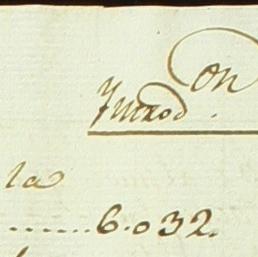 on
Introd.
la
......6.032.